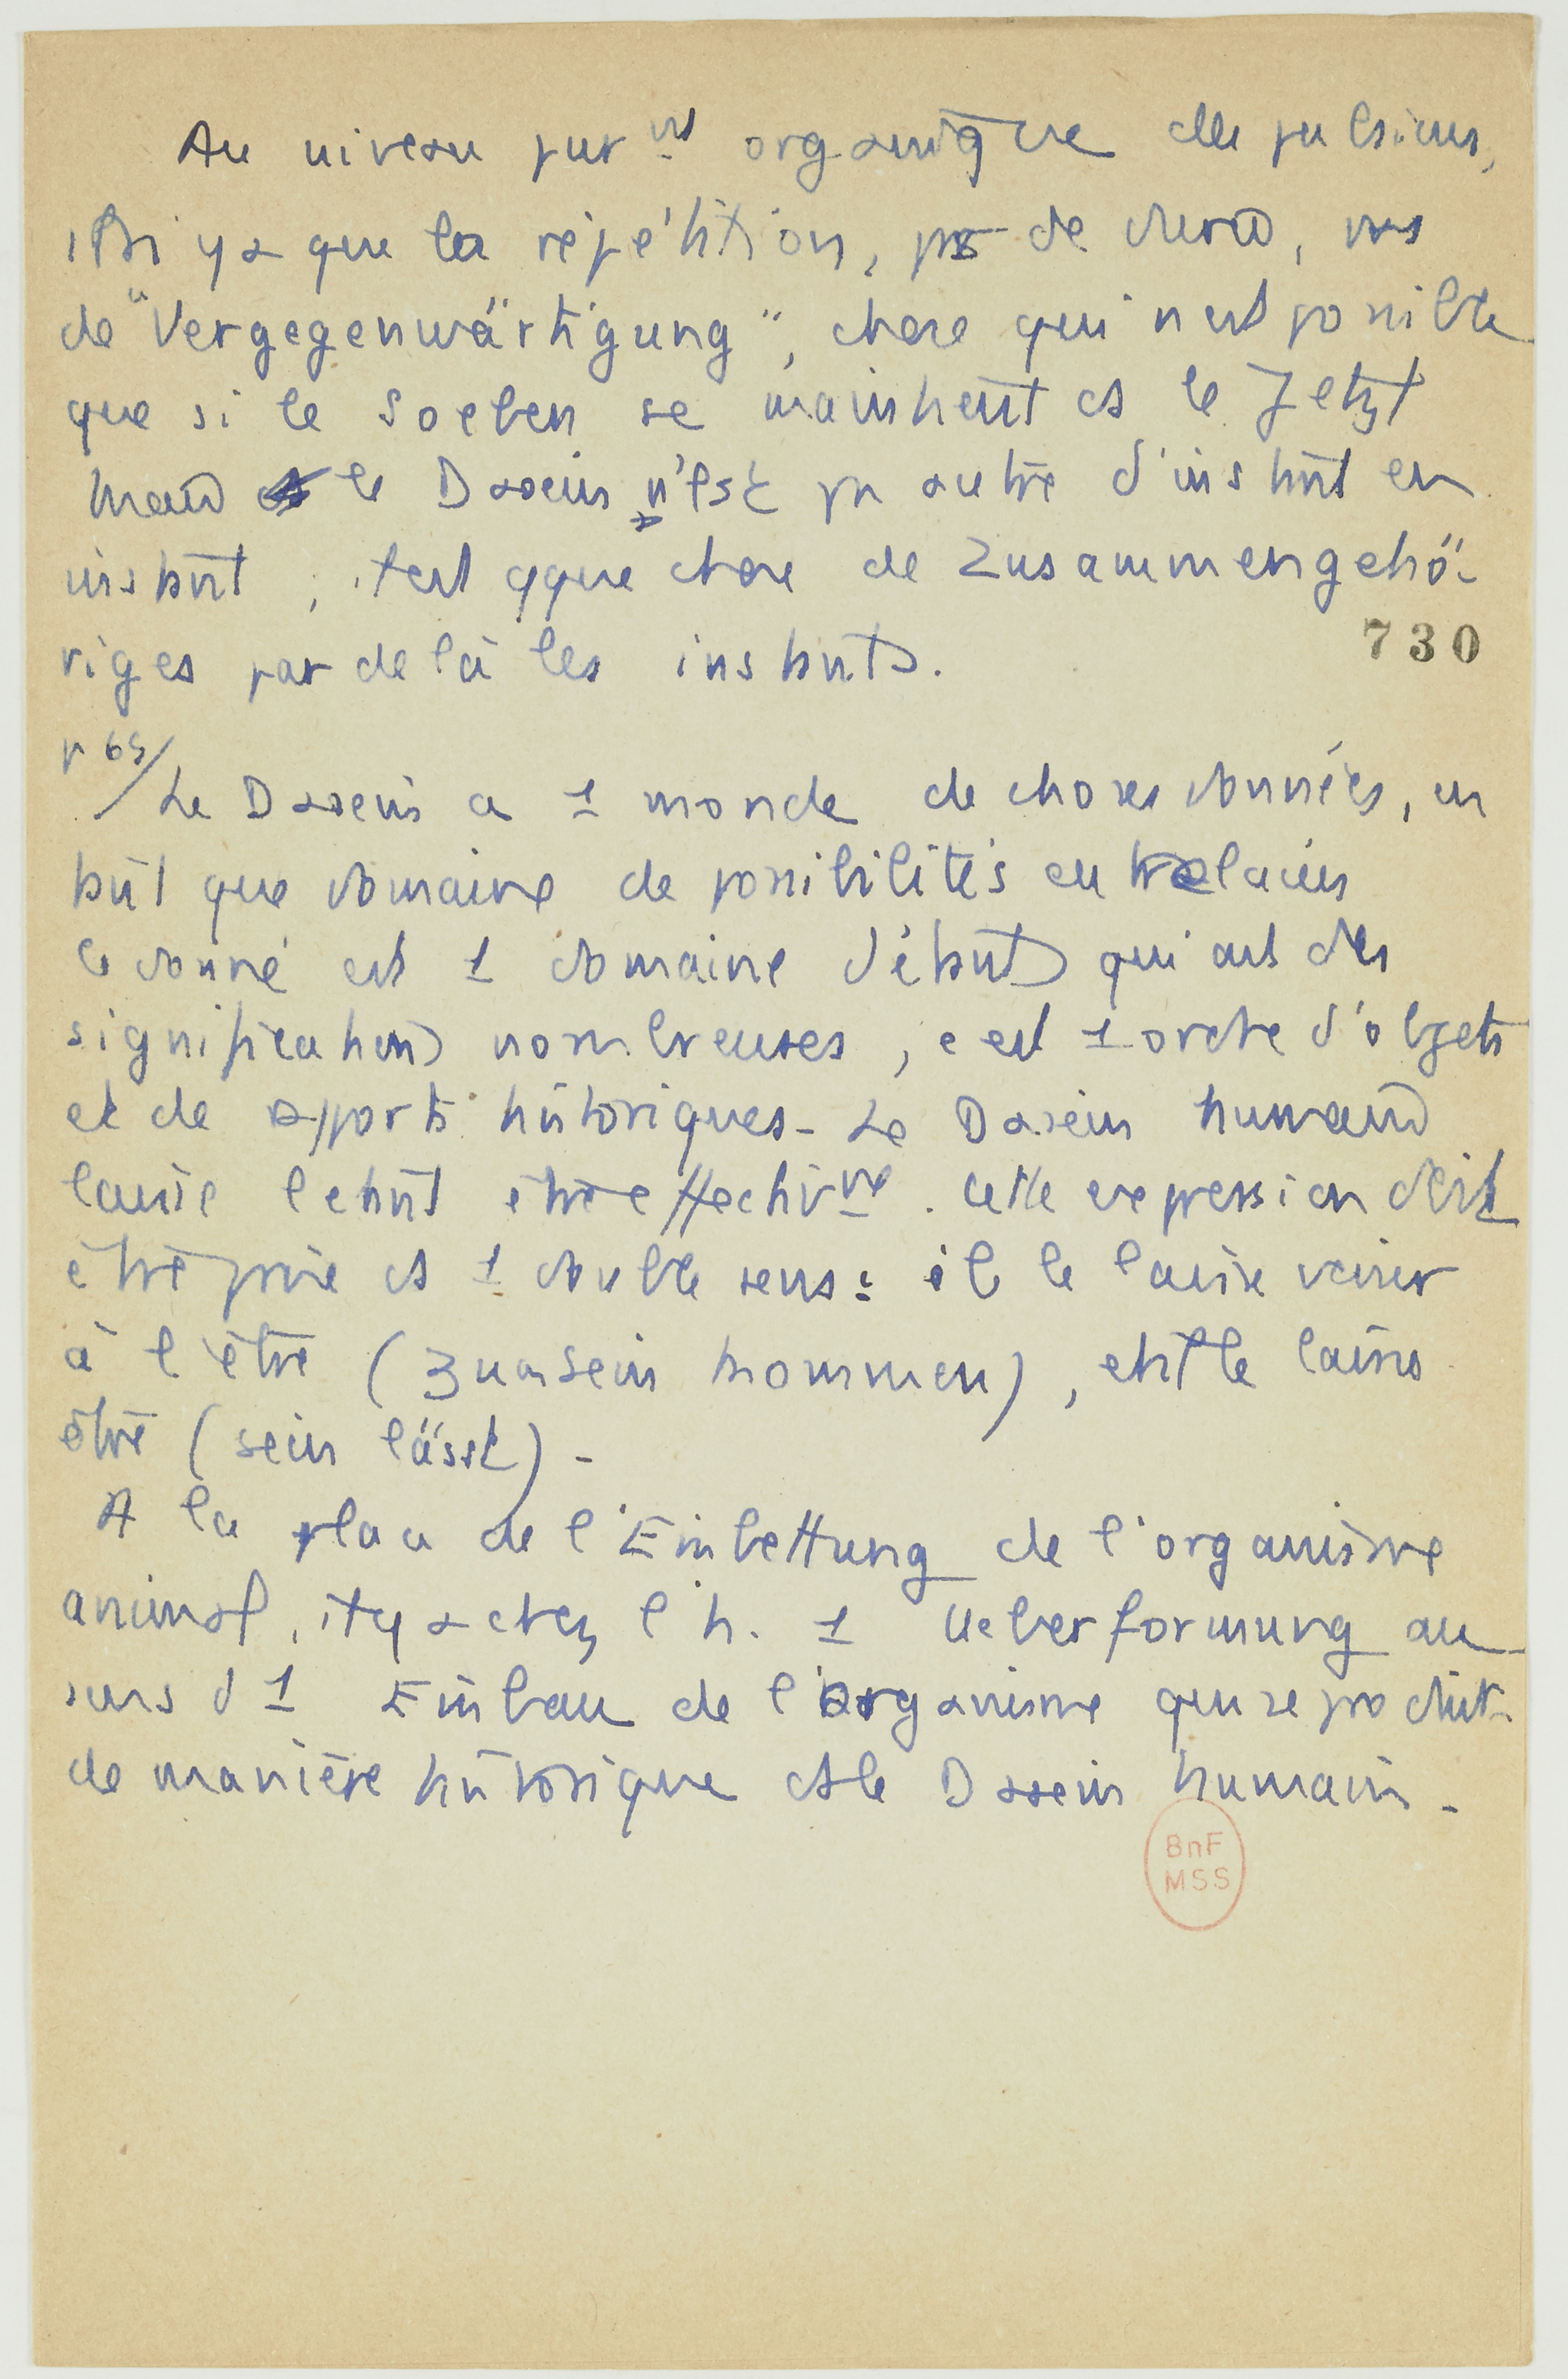 Au niveau purnt organique des pulsions,
il n'y a que la répétition, pas de durée, pas
de "Vergegenwärtigung", chose qui n'est possible
que si le Soeben se maintient ds le Jetzt
le Dasein n'est pas autre d'instant en
instant, il est qque chose de Zusammengehö-
riges par delà les instants.
730
p 65/ Le Dasein a 1 monde de choses données, en
tant que domaine de possibilités
le donné est 1 domaine d'étants qui ont des
significations nombreuses, c'est 1 ordre d'objets
et de rapports historiques. Le Dasein humain
laisse l'étant être effectivnt. Cette expression doit
être prise ds 1 double sens : il le laisse venir
à l'être (zum Sein kommen), et il le laisse
être (sein lässt) -
A la place de l'Einbettung de l'organisme
animal, il y a chez l'h. 1 Ueberformung au
sens d'1 Einbau de l'organisme qui se produit
de manière historique ds le Dasein humain -
BnF
MSS